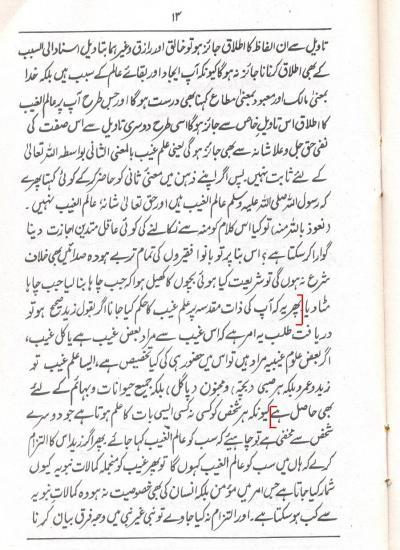 ۱۳
تاویل سے ان الفاظ کا اطلاق جائز ہو تو خالق اور رازق وغیرہما بتاویل اسناد الی السبب
کے بھی اطلاق کرنا ناجائز نہ ہوگا کیونکہ آپ ایجاد اور بقائے عالم کے سبب ہیں بلکہ خدا
بمعنی مالک اور معبود بمعنی مطاع کہنا بھی درست ہوگا اور جس طرح آپ پر عالم الغیب
کا اطلاق اس تاویل خاص سے جائز ہوگا اسی طرح دوسری تاویل سے اس صفت کی
نفی حق جل وعلا شانہ سے بھی جائز ہوگی یعنی علم غیب بالمعنی الثانی بواسطہ اللہ تعالیٰ
کے لئے ثابت نہیں۔ پس اگر اپنے ذہن میں معنی ثانی کو حاضر کر کے کوئی کہتا پھرے
کہ رسول اللہ صلی اللہ علیہ وسلم عالم الغیب ہیں اور حق تعالیٰ شانہٗ عالم الغیب نہیں۔
(نعوذ باللہ منہ) تو کیا اس کلام کو منہ سے نکالنے کی کوئی عاقل متدین اجازت دینا
گوارا کر سکتا ہے؟ اس بنا پر تو بانوا فقیروں کی تمام تر بے ہودہ صدائیں بھی خلاف
شرع نہ ہوں گی تو شریعت کیا ہوئی بچوں کا کھیل ہوا کہ جب چاہا بنا لیا جب چاہا
مٹا دیا پھر یہ کہ آپ کی ذات مقدسہ پر علم غیب کا حکم کیا جانا اگر بقول زید صحیح ہو تو
دریافت طلب یہ امر ہے کہ اس غیب سے مراد بعض غیب ہے یا کل غیب،
اگر بعض علوم غیبیہ مراد ہیں تو اس میں حضور ہی کی کیا تخصیص ہے، ایسا علم غیب تو
زید وعمرو بلکہ ہر صبی (بچہ) ومجنون (پاگل) بلکہ جمیع حیوانات وبہائم کے لئے
بھی حاصل ہے کیونکہ ہر شخص کو کسی نہ کسی ایسی بات کا علم ہوتا ہے جو دوسرے
شخص سے مخفی ہے تو چاہیئے کہ سب کو عالم الغیب کہا جائے پھر اگر زید اس کا التزام
کرے کہ ہاں میں سب کو عالم الغیب کہوں گا تو پھر غیب کو منجملہ کمالات نبویہ کیوں
شمار کیا جاتا ہے جس امر میں مؤمن بلکہ انسان کی بھی خصوصیت نہ ہو وہ کمالات نبویہ
سے کب ہو سکتا ہے۔ اور التزام نہ کیا جاوے تو نبی غیر نبی میں وجہ فرق بیان کرنا